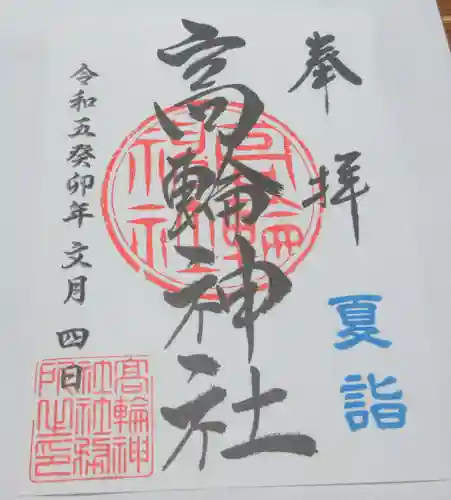 奉拝
夏詣
高輪神社
令和五癸卯年文月四日
高輪神社
髙輪神社社務所之印